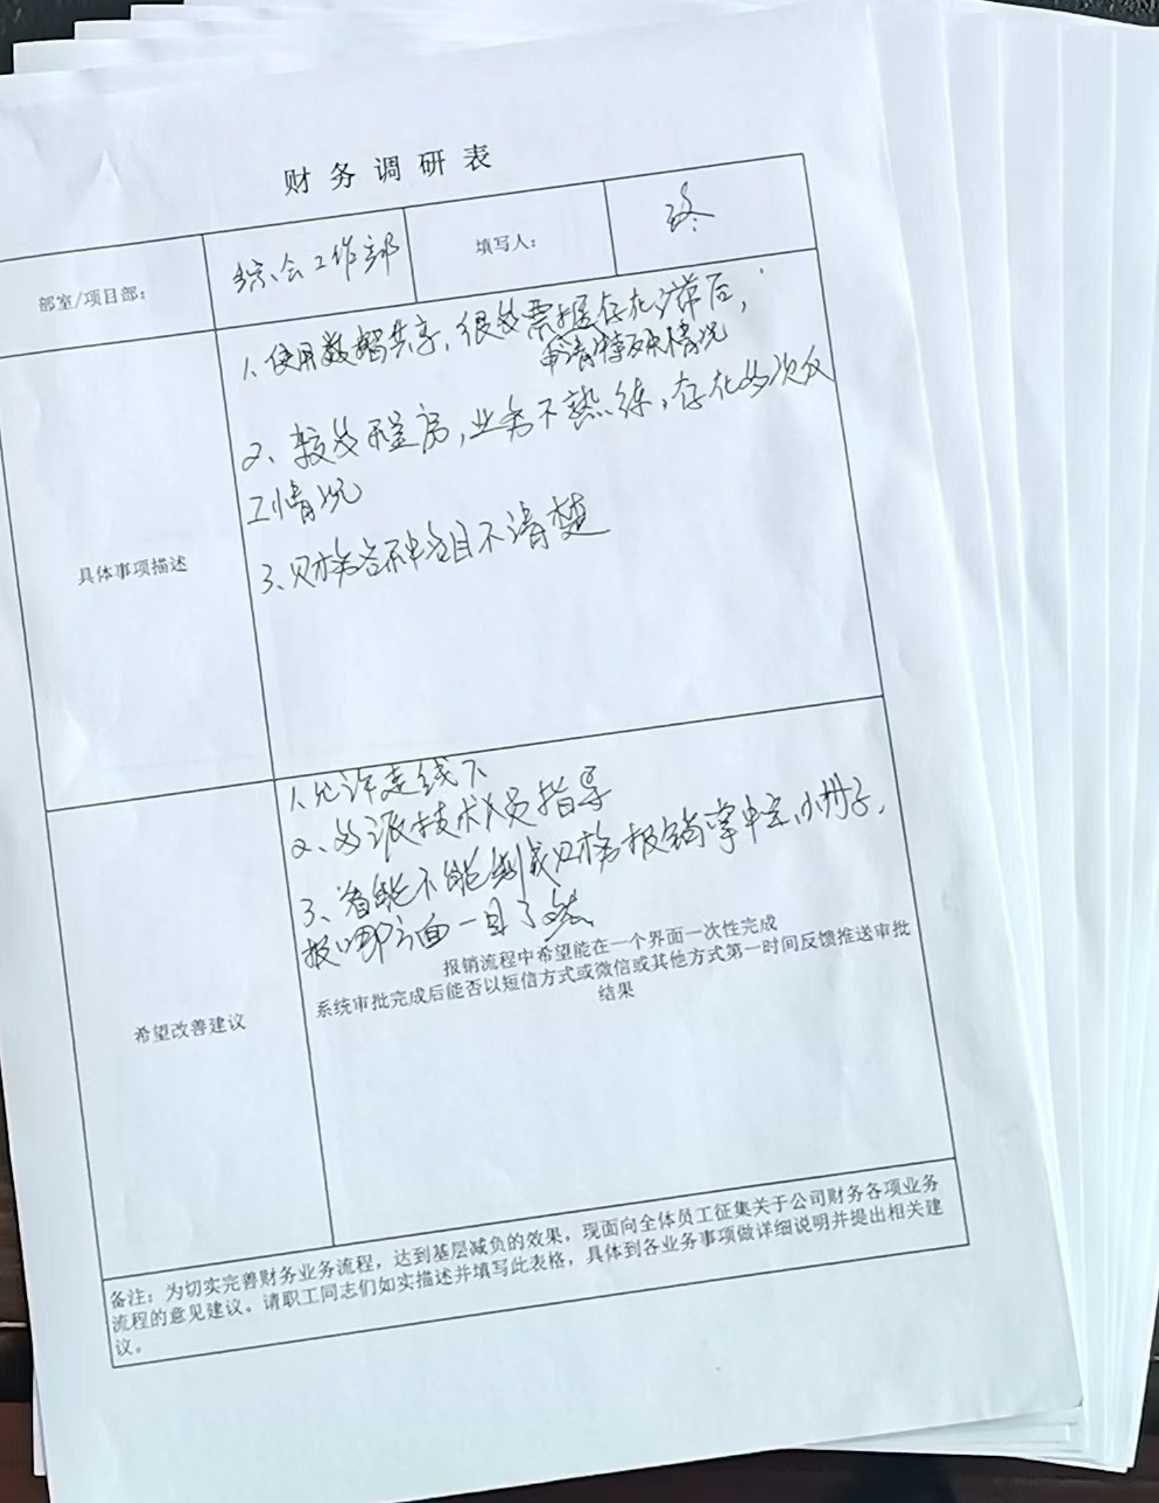 财务调研表
部室/项目部：
综合工作部
填写人：
1、使用数据共享，很多票据存在滞后，
申请特殊情况
2、较多程序，业务不熟练，存在多次返
工情况
具体事项描述
3、财务各种科目不清楚
1、允许走线下
2、多派技术人员指导
3、看能不能制成财务报销掌中宝小册子，
报哪方面一目了然
报销流程中希望能在一个界面一次性完成
系统审批完成后能否以短信方式或微信或其他方式第一时间反馈推送审批
结果
希望改善建议
备注：为切实完善财务业务流程，达到基层减负的效果，现面向全体员工征集关于公司财务各项业务
流程的意见建议。请职工同志们如实描述并填写此表格，具体到各业务事项做详细说明并提出相关建
议。